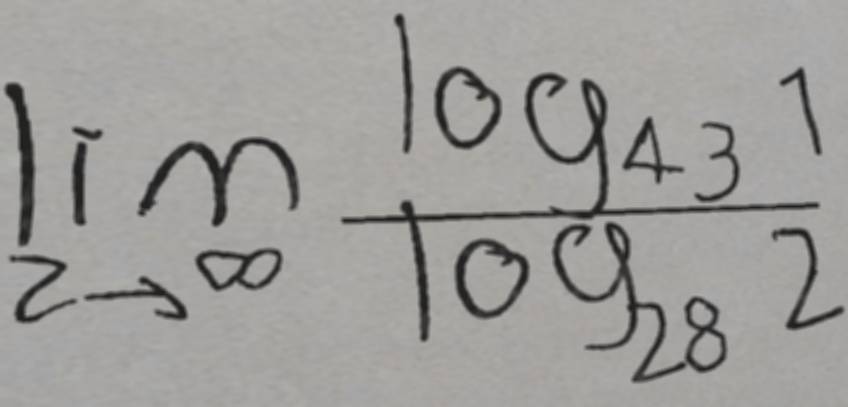 \lim_{z \to \infty} \frac{\log_{43} 1}{\log_{28} 2}